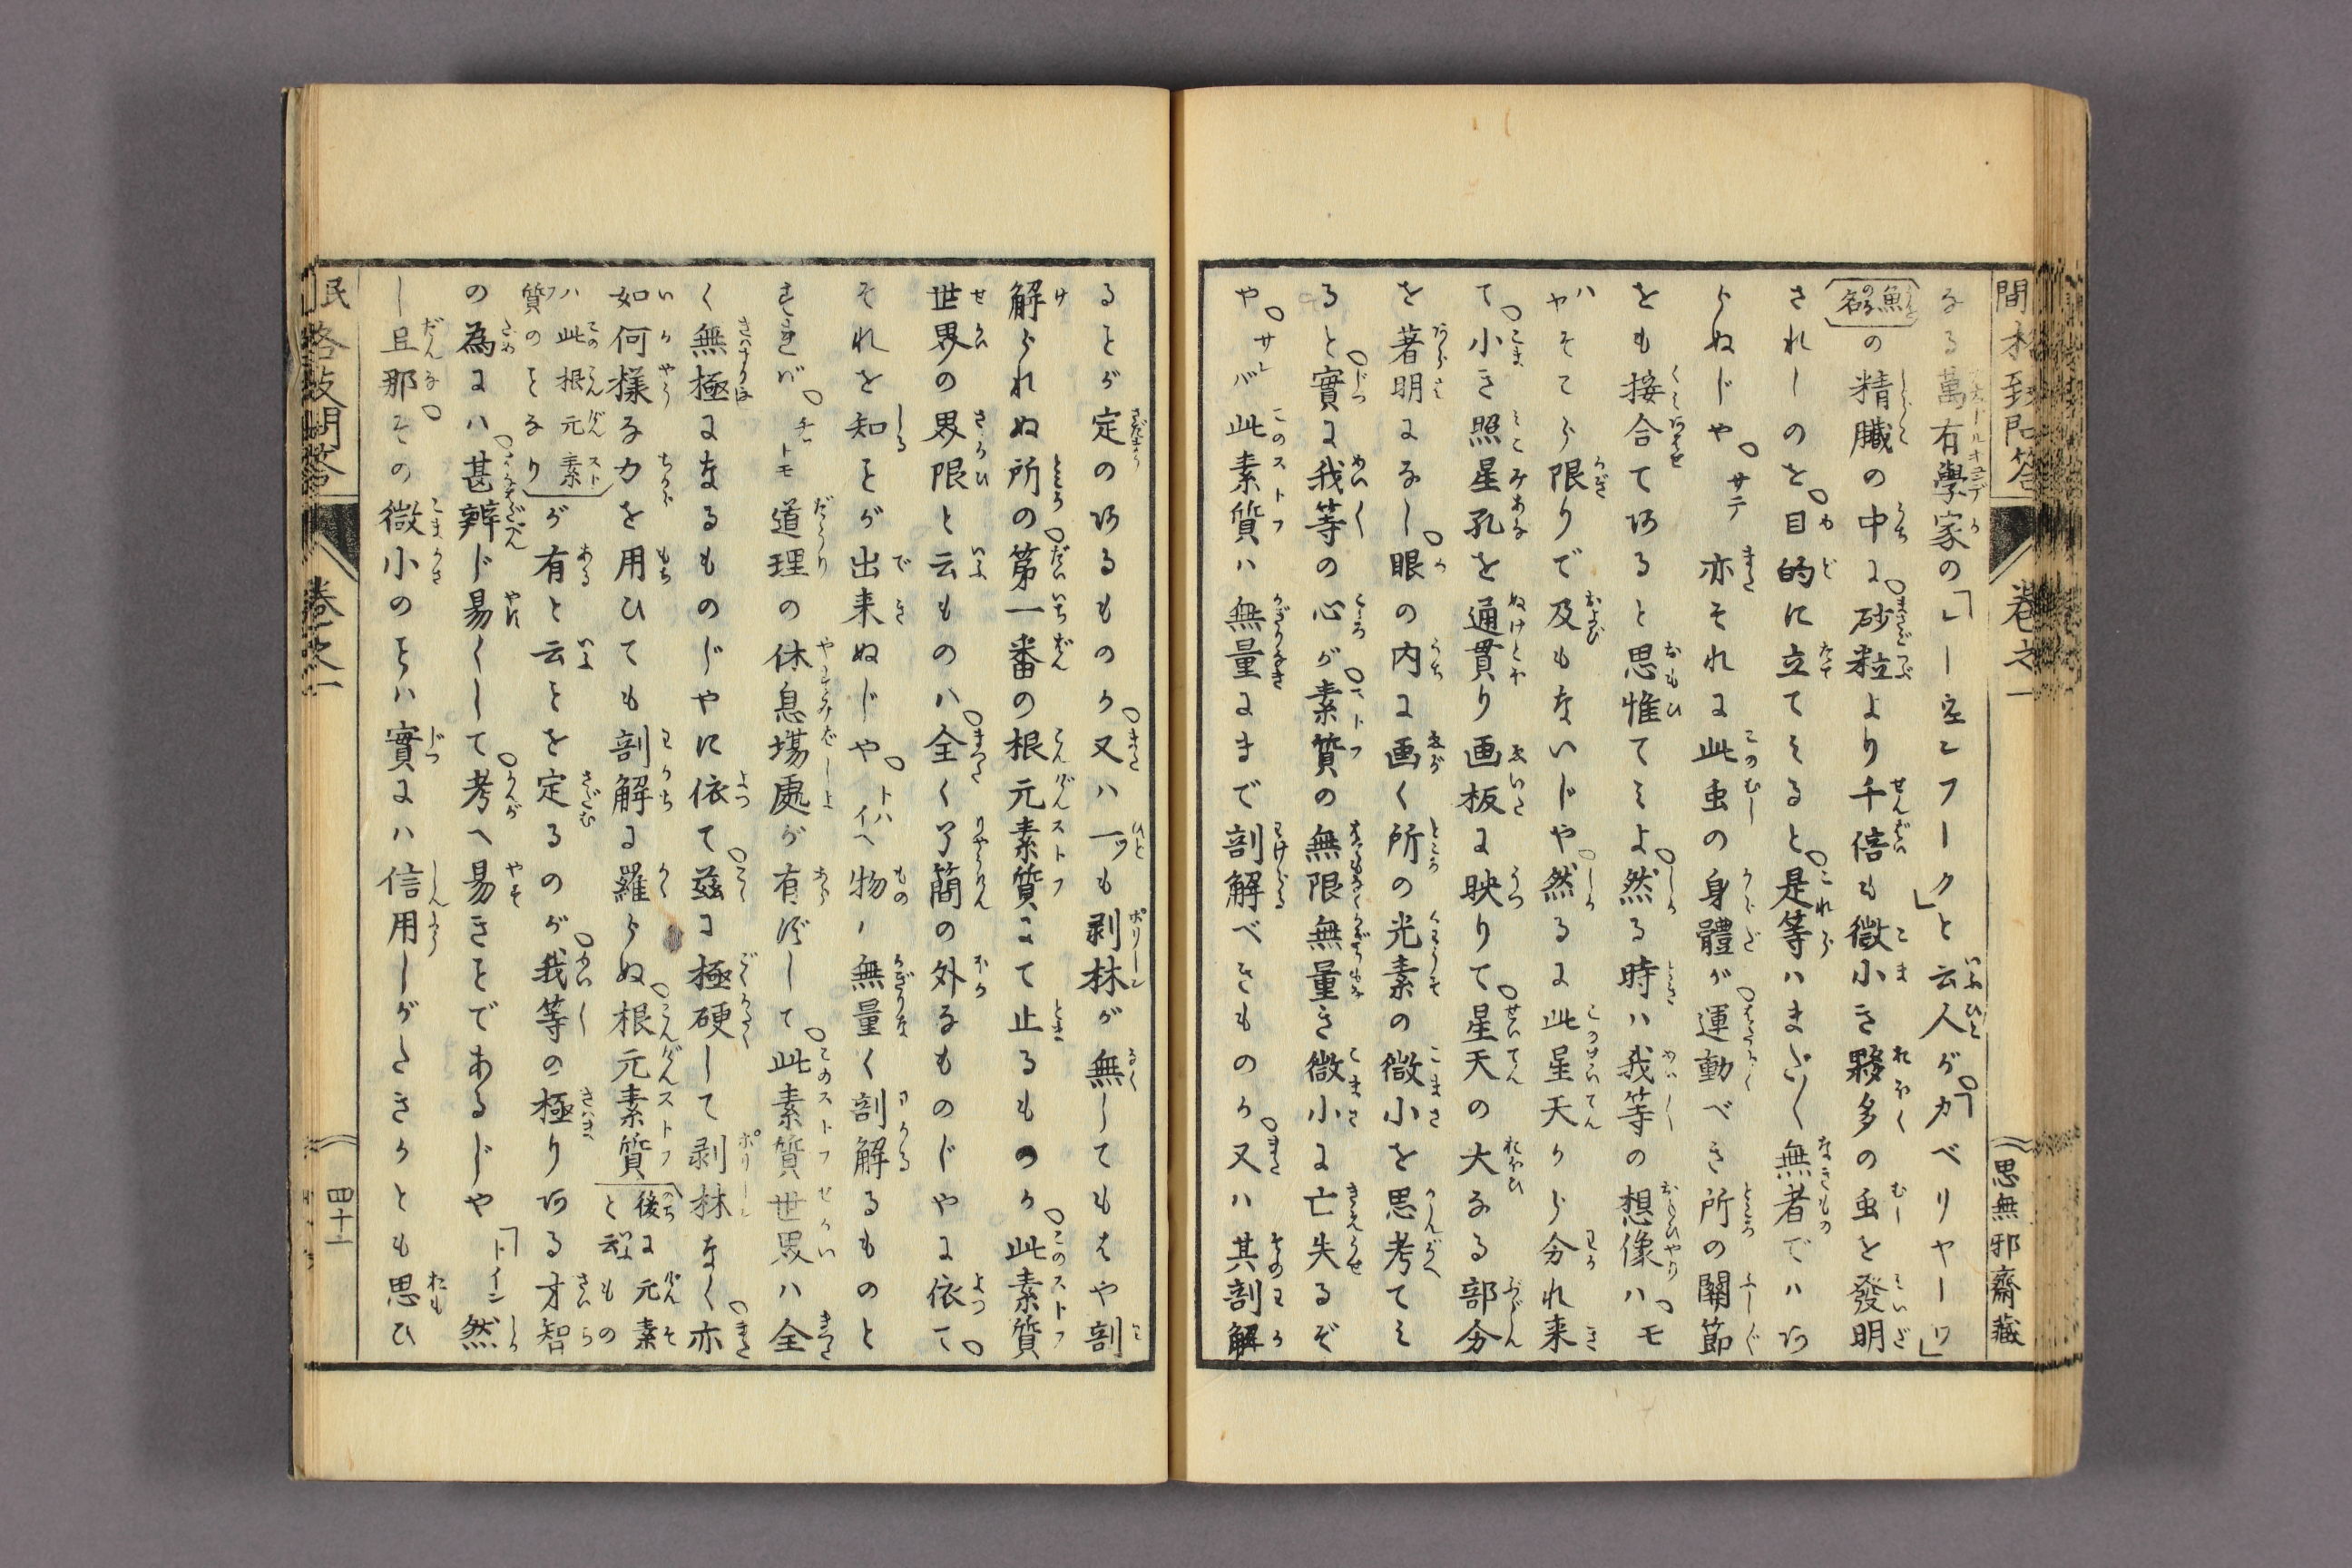 卷之一
思無邪齋藏
なる萬有學家の「レーエンフーク」と云人が「カベリヤーワ」
魚の名の精臓の中に砂粒より千倍も微小き夥多の虫を發明
されしのを目的に立てみると是等ハまだ〱無者でハあ
らぬじやサテ亦それに此虫の身體が運動べき所の關節
をも接合てあると思惟てみよ然る時ハ我等の想像ハモ
ハヤそこら限りで及もないじや然るに此星天から分れ来
て小き照星孔を通貫り画板に映りて星天の大なる部分
を著明になし眼の内に画く所の光素の微小を思考てみ
ると實に我等の心が素質の無限無量き微小に亡失るぞ
やサレバ此素質ハ無量にまで剖解べきものか又ハ其剖解
ることが定のあるものか又ハ一ツも剥林が無してもはや剖
解られぬ所の第一番の根元素質にて止るものか此素質
世界の界限と云ものハ全く了簡の外なるものじやに依て
それを知ことが出来ぬじやトハイヘ物ハ無量く剖解るものと
すればチットモ道理の休息場處が有ずして此素質世界ハ全
く無極になるものじやに依て茲に極硬して剥林なく亦
如何樣な力を用ひても剖解に羅らぬ根元素質後に元素と云もの
ハ此根元素質のことなりが有と云ことを定るのが我等の極りある才智
の為にハ甚辨じ易くして考へ易きことであるじや「トイン然
し旦那その微小のことハ實にハ信用しがたきかとも思ひ
卷之一
四十二